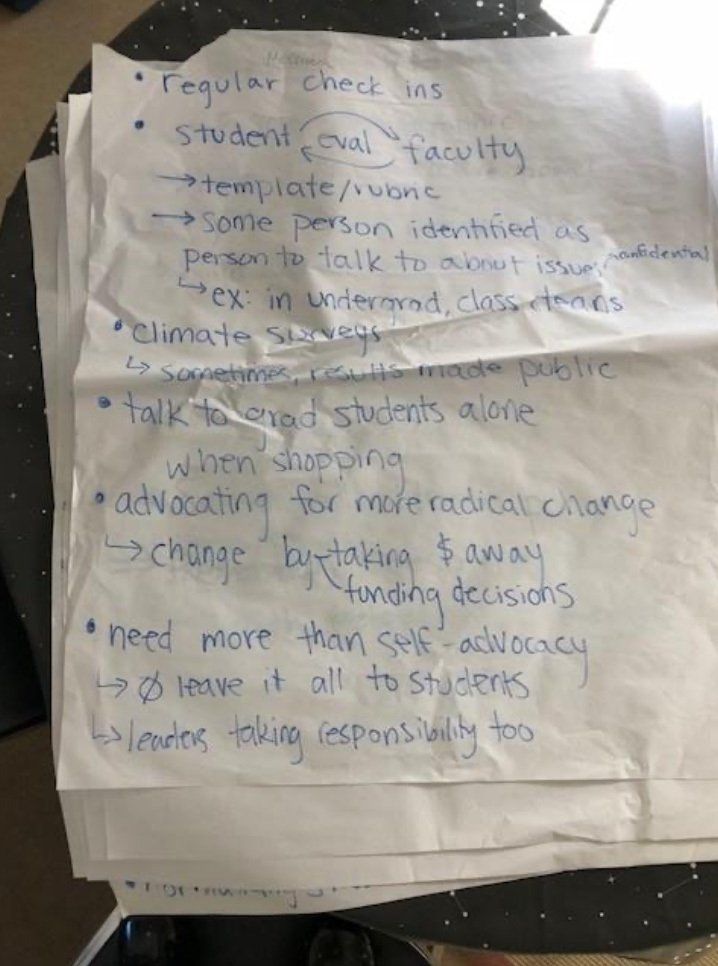 • regular check ins
• student eval faculty
→ template/rubric
→ some person identified as
person to talk to about issues confidential
↳ ex: in undergrad, class deans
• climate surveys
↳ sometimes, results made public
• talk to grad students alone
when shopping
• advocating for more radical change
↳ change by taking $ away
funding decisions
• need more than self-advocacy
↳ Ø leave it all to students
↳ leaders taking responsibility too